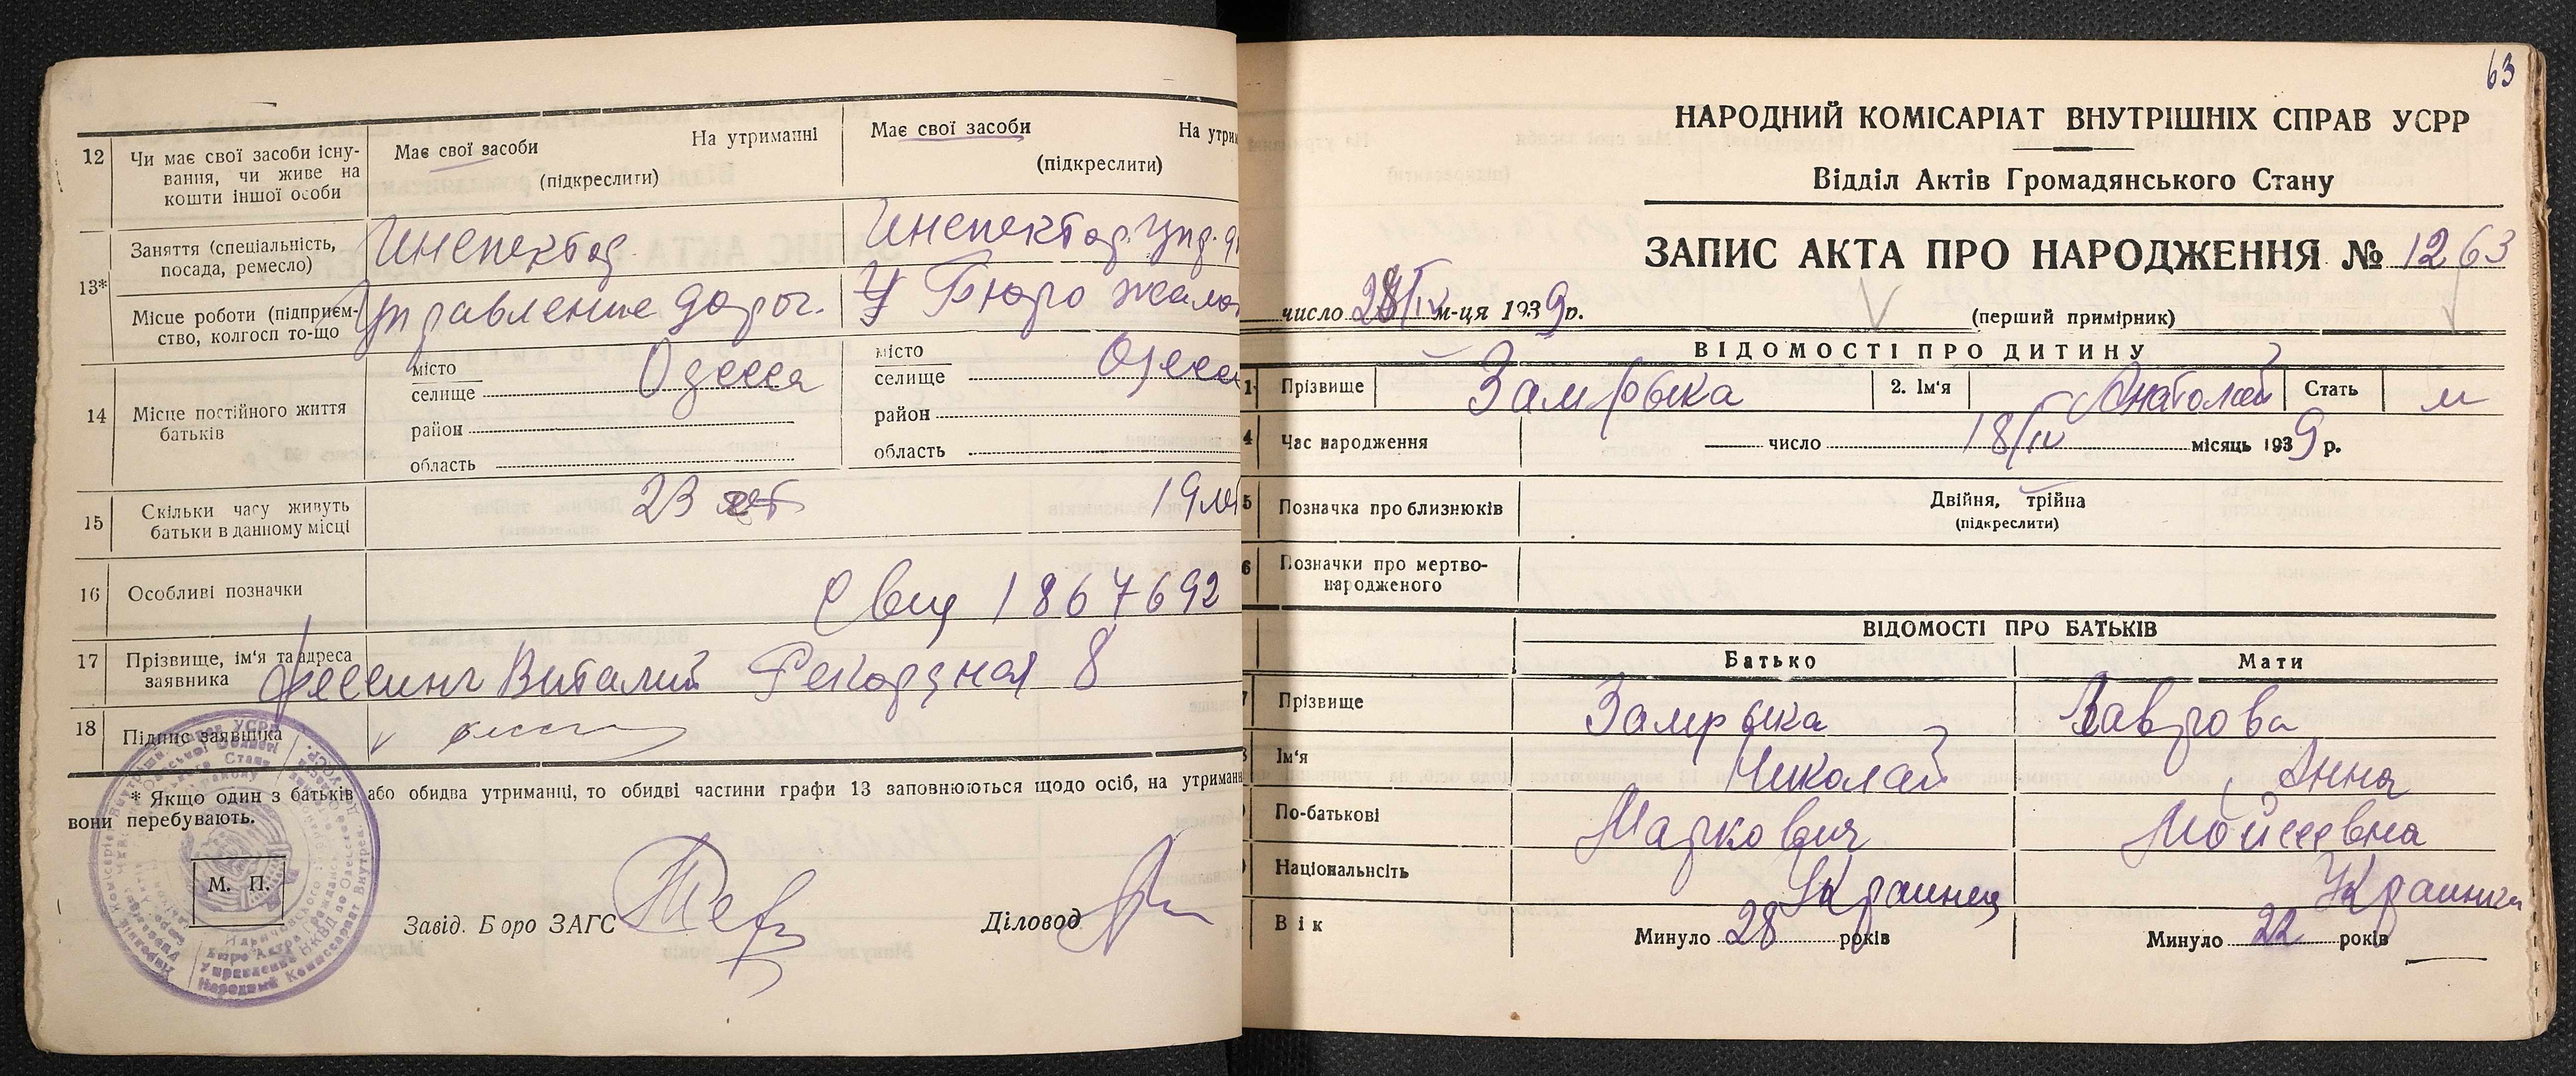 12
Чи має свої засоби існу-
вання, чи живе на
кошти іншої особи
Має свої засоби На утриманні
(підкреслити)
Має свої засоби На утрим
(підкреслити)
13*
Заняття (спеціальність,
посада, ремесло)
Инспектор
Инспектор Упр.
Місце роботи (підприєм-
ство, колгосп то-що
Управление дорог.
Бюро жалоб
14
Місце постійного життя
батьків
місто
селище Одесса
район
область
місто
селище Одесса
район
область
15
Скільки часу живуть
батьки в данному місці
23 лет
19 лет
16
Особливі позначки
Свид 1867692
17
Прізвище, ім'я та адреса
заявника
Фессинг Виталий Рекордная 8
18
Підпис заявника
* Якщо один з батьків або обидва утриманці, то обидві частини графи 13 заповнюються щодо осіб, на утриманні
вони перебувають.
М. П.
Завід. Бюро ЗАГС
Діловод
63
НАРОДНИЙ КОМІСАРІАТ ВНУТРІШНІХ СПРАВ УСРР
Відділ Актів Громадянського Стану
ЗАПИС АКТА ПРО НАРОДЖЕННЯ № 1263
число 28/IV м-ця 1939 р.
(перший примірник)
ВІДОМОСТІ ПРО ДИТИНУ
1 Прізвище Замрыка 2. Ім'я Анатолий Стать м
4 Час народження число 18/IV місяць 1939 р.
5 Позначка про близнюків
Двійня, трійна
(підкреслити)
6 Позначки про мертво-
народженого
ВІДОМОСТІ ПРО БАТЬКІВ
Батько Мати
7 Прізвище Замрыка Лаврова
Ім'я Николай Анна
По-батькові Маркович Мойсеевна
Національність Украинец Украинка
Вік Минуло 28 років Минуло 22 років